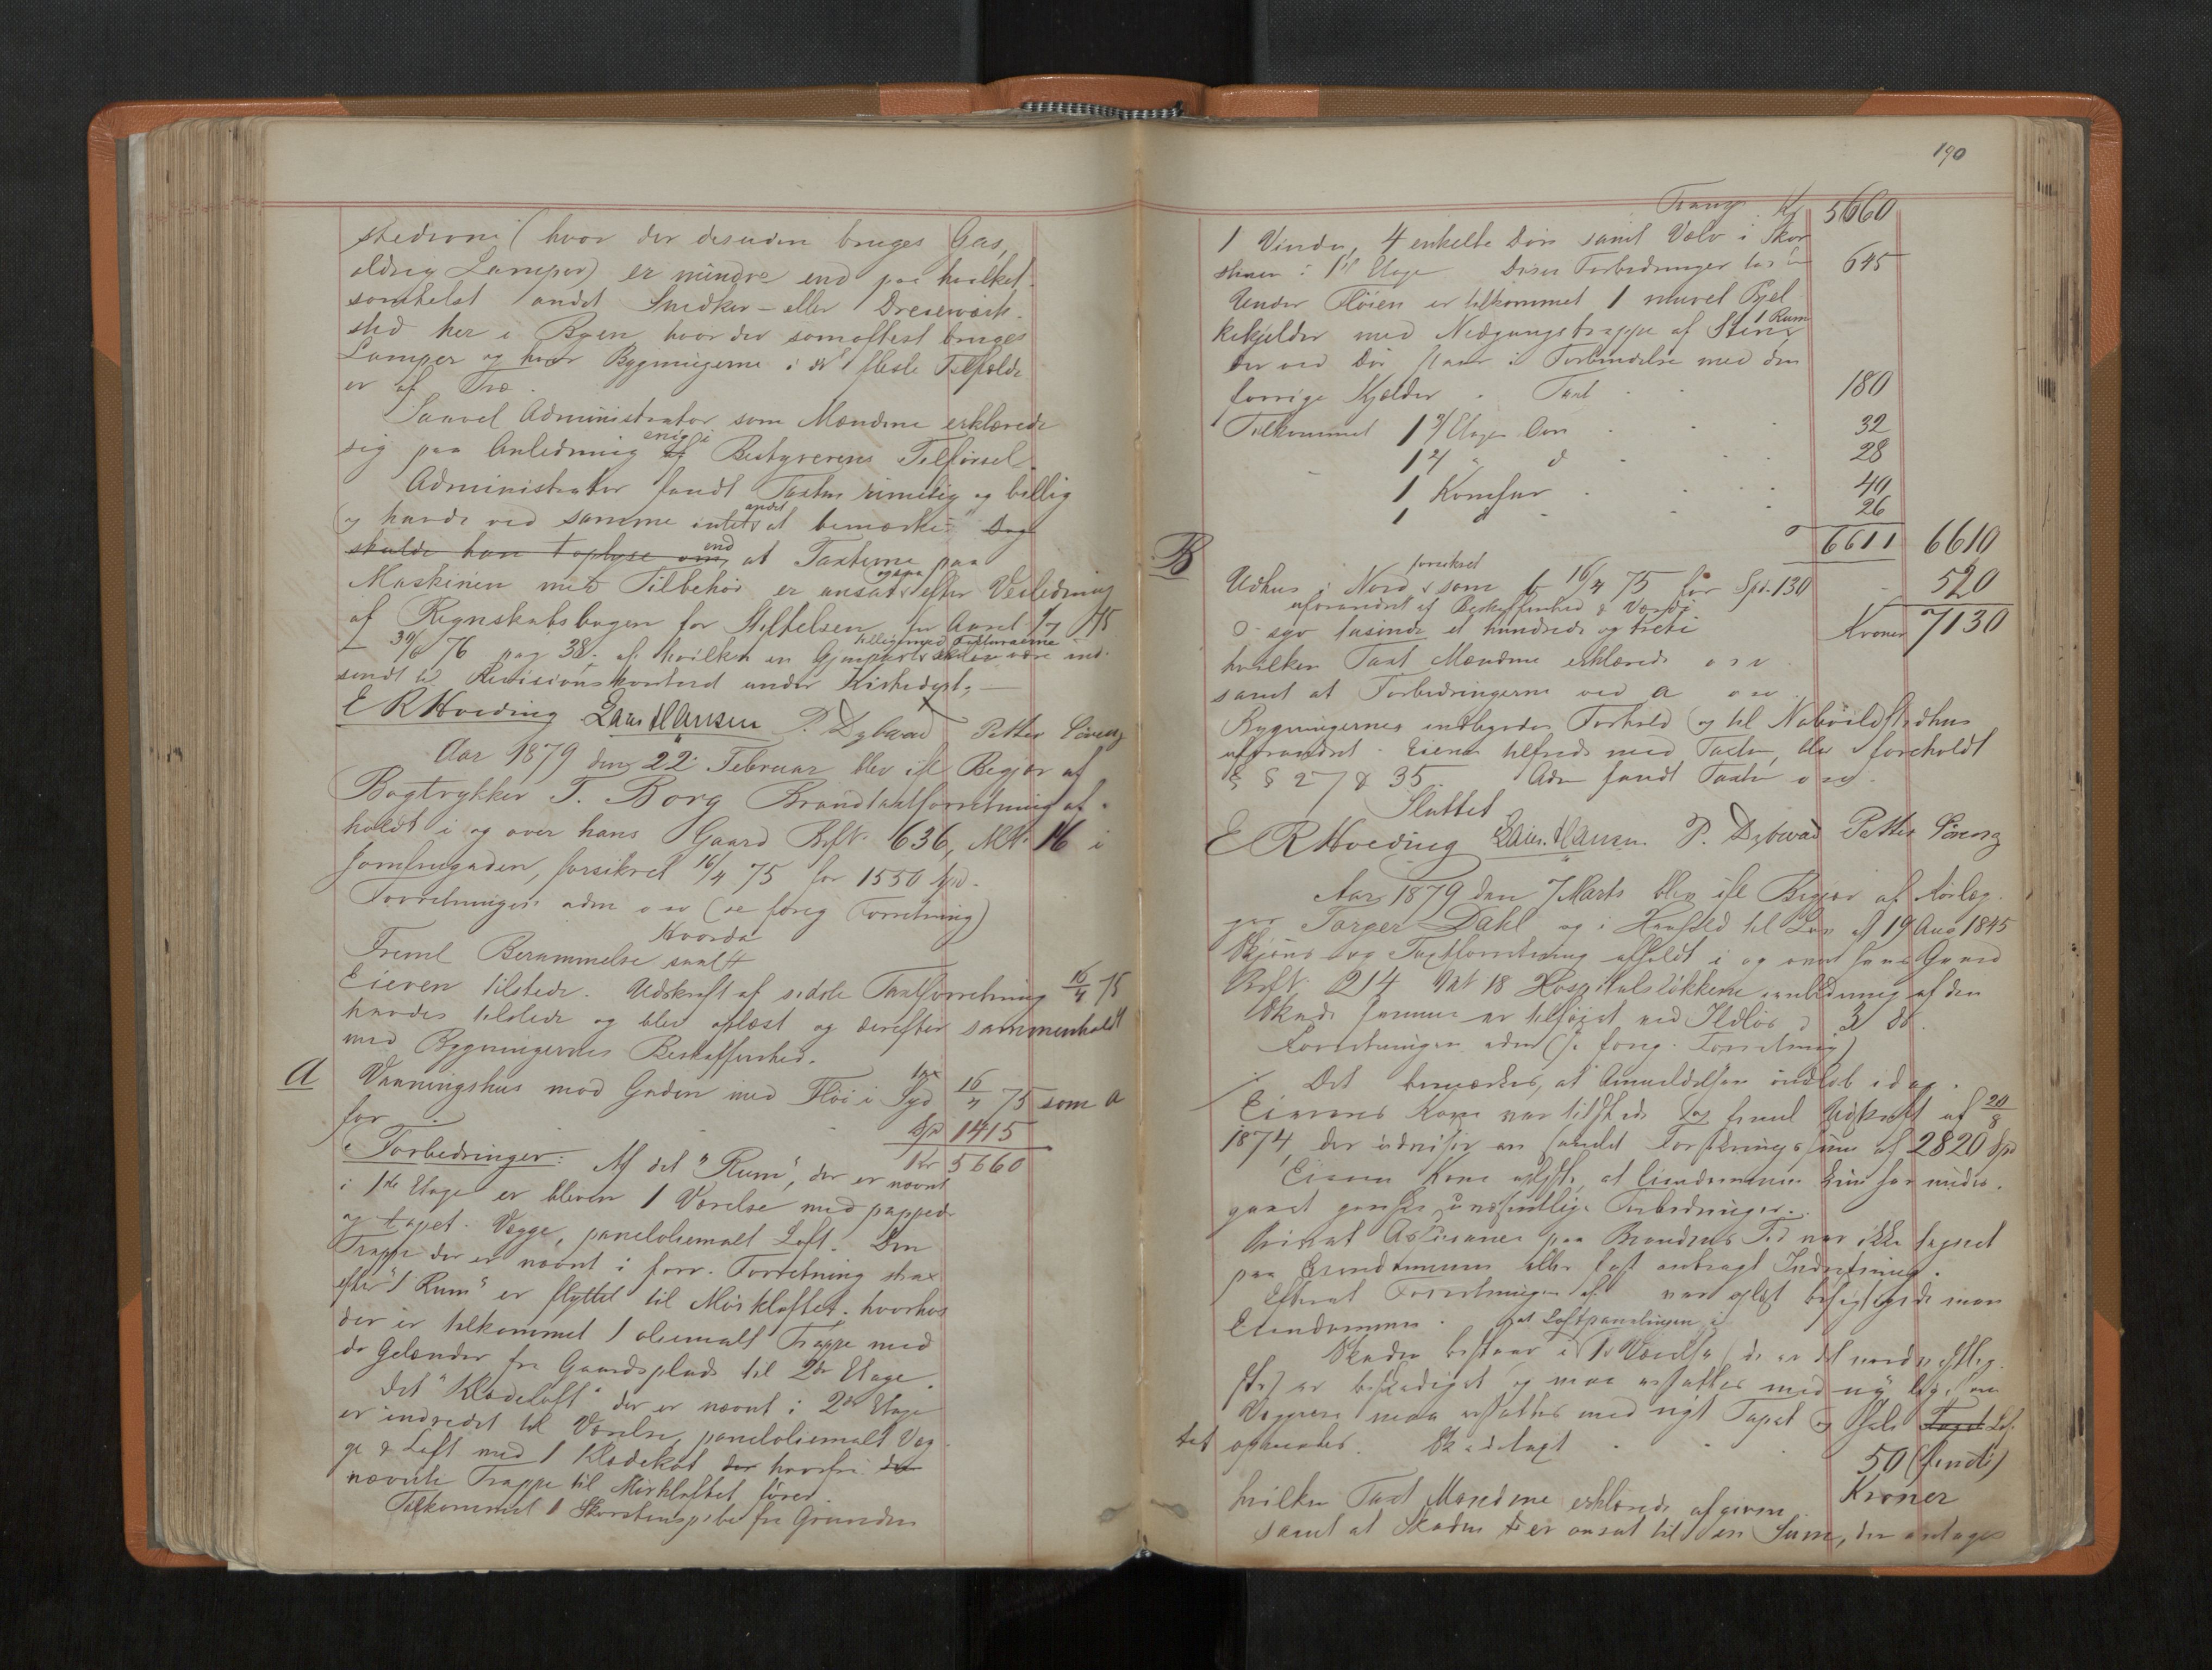 stederne (hvor der desuden bruges Gas,
aldrig Lamper) er mindre end paa hvilket
somhelst andet Snedker- eller Dreierværk-
sted her i Byen, hvor der somoftest bruges
Lamper og hvor Bygningerne i de fleste Tilfælde
er af Træ.
Saavel Administrator som Mændene erklærede
sig paa Anledning enig i Bestyrerens Tilførsel.
Administrator fandt Taxten rimelig og billig
og havde ved samme intet andet at bemærke: Dog
skulde han oplyse om, end at Taxterne paa
Maskinen med Tilbehør er ansat ogsaa efter Veiledning
af Regnskabsbogen for Stiftelsen for Aaret 1/7 75
- 30/6 76 pag 38. af hvilken en Gjenpart tilligemed Fakturaerne skal være ind-
sendt til Revisionskontoret under Kirkedept.
E R Hveding Lars Hansen P. Dybwad Petter Sørensg
Aar 1879 den 22 Februar blev ifl Begjær af
Bogtrykker T. Borg Brandtaxtforretning af-
holdt i og over hans Gaard Bf.N. 636, M.N. 16 i
Jomfrugaden, forsikret 16/4 75 for 1550 Spd.
Forretningen adm o sv (se foreg Forretning)
Freml Berammelse saal.
Eieren tilstede. Udskrift af sidste Taxtforretning 16/4 75
havdes tilstede og blev oplæst og derefter sammenholdt
med Bygningernes Beskaffenhed.
A Vaaningshus mod Gaden med Fløi i Syd 16/4 75 som a
for Spd 1415
Kr 5660
Forbedringer: Af det "Rum", der er nævnt
i 1ste Etage er bleven 1 Værelse med pappede
og tapet. Vægge, paneloliemalt Loft. Den
Trappe der er nævnt i forr. Forretning strax
efter "1 Rum" er flyttet til Mørkloftet, hvorhos
der er tilkommet 1 oliemalt Trappe med
do Gelænder fra Gaardsplads til 2den Etage.
Det "Klædeloft" der er nævnt i 2den Etage
er indredet til Værelse, paneloliemalt Væg-
ge & Loft med 1 Klædekot der hvorfra den
nævnte Trappe til Mørkloftet fører.
Tilkommet 1 Skorstenspibe fra Grunden
190
Transp. Kr 5660
1 Vindu, 4 enkelte Døre samt Vælv i Skor
stenen i 1ste Etage Disse Forbedringer 645
Under Fløien er tilkommet 1 muret Bjel
kekjelder med Nedgangstrappe af Sten 1 Rum
der ved Dør staar i Forbindelse med den
forrige Kjælder. Taxt 180
Tilkommet 1 3/Etages Ovn 32
1 2/ " d 28
1 Komfur 40
1 d 26
6611 6610
B
Udhus i Nord forsikret som b 16/4 75 for Spd. 130 520
uforandret af Beskaffenhed & Værdi
syv tusinde et hundrede og treti Kroner 7130
hvilken Taxt Mændene erklærede o s v
samt at Forbedringerne ved a o s v.
Bygningernes indbyrdes Forhold og til Naboildstedhus
uforandret. Eieren tilfreds med Taxten, blev foreholdt
§ § 27 & 35. Adm fandt Taxten o s v.
Sluttet
E R Hveding Lars Hansen P. Dybwad Petter Sørensg
Aar 1879 den 7 Marts blev ifl Begjær af
Torger Dahl og i Henhold til Lov af 19 Aug 1845
Skjøns og Taxtforretning afholdt i og over hans Gaard
Bf.N. 214 MN 18 Hospitalsløkkene i anledning af den
Skade samme er tilføiet ved Ildløs d 3 ds.
Forretningen adm (se foreg. Forretning)
Det bemærkes, at Anmeldelsen indløb idag.
Eierens Kone var tilstede Dog freml Udskrift af 20/8
1874, der udviser en samlet Forsikringssum af 2820 Spd
Eierens Kone oplyste, at Eiendommen kun har under-
gaaet ganske uvæsentlige Forbedringer.
Privat Assurance paa Brandens Tid var ikke tegnet
paa Eiendommen eller fast anbragt Indretning.
Efterat Forretningen af var oplæst besigtigede man
Eiendommen.
Skaden bestaar i at Loftpanelingen i 1 Værelse (de er det nordvestlig-
ste) er beskadiget og maa erstattes med ny ligesom
Væggene maa erstattes med nyt Tapet og hele Taget Lof-
tet opmales. Skadetaxt 50 (femti)
Kroner
hvilken Taxt Mændene erklærede afgiven
samt at Skaden er ansat til en Sum, der antages